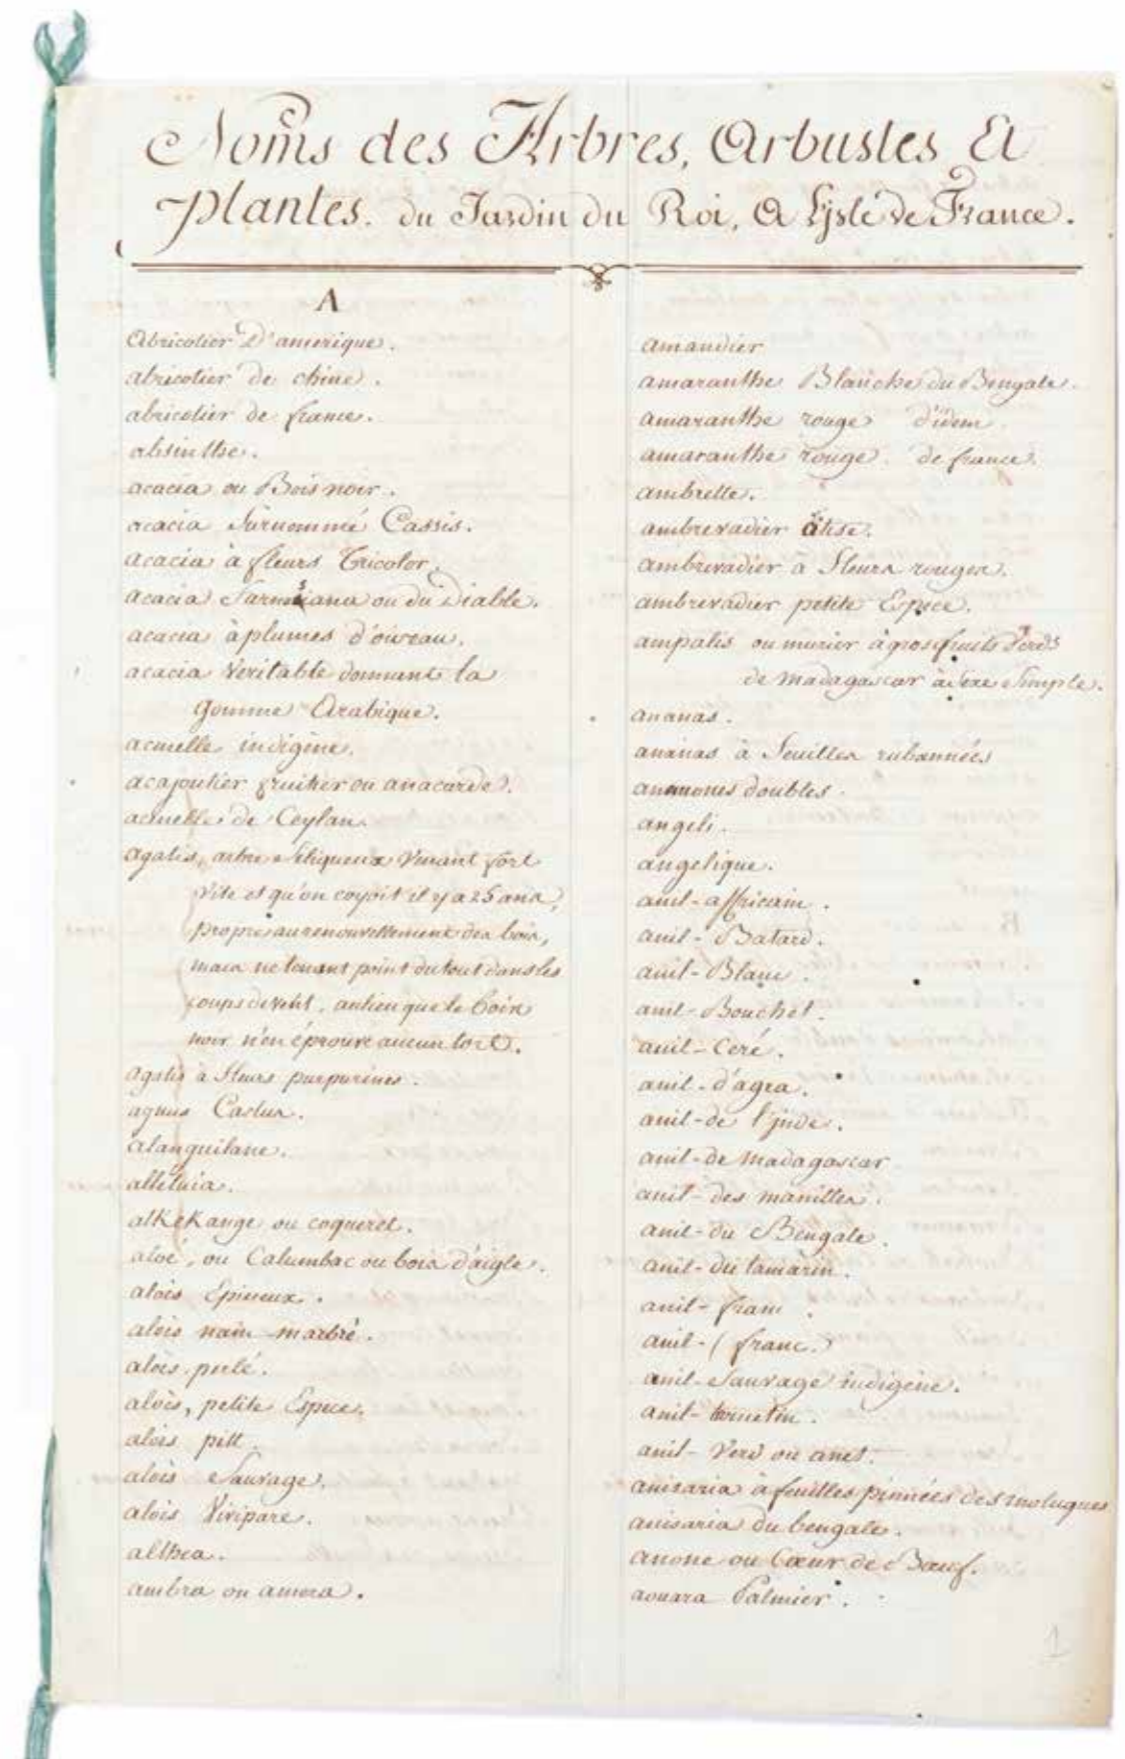 Noms des Arbres, Arbustes Et
Plantes. du Jardin du Roi, A L'jsle de France.
A
Abricotier D'amerique.
abricotier de chine.
abricotier de france.
absinthe.
acacia ou Bois noir.
acacia Surnommé Cassis.
acacia à fleurs Tricolor.
acacia ou du Diable.
acacia à plumes d'oiseau.
acacia Veritable donnant la
Gomme Arabique.
acmelle indigène.
acajoutier fruitier ou anacarde.
acmelle de Ceylan
agatis, arbre Siliqueux Venant fort
Vite et qu'on croyoit il y a 25 ans,
propre au renouvellement des bois,
mais ne tenant point du tout dans les
coups de vent, au lieu que le bois
noir n'en éprouve aucun tort.
agatis à fleurs purpurines.
agnus Castus.
alanguilane.
alleluia.
alkekange ou coqueret.
aloé, ou Calumbac ou bois d'aigle.
aloès Epineux.
aloès nain marbré.
aloès perlé.
aloès, petite Espece.
aloès pitt.
aloès Sauvage.
aloès Vivipare.
althea.
ambra ou amera.
amandier
amaranthe Blanche du Bengale.
amaranthe rouge d'idem
amaranthe rouge de france.
ambrette.
ambrevadier
ambrevadier à fleurs rouges.
ambrevadier petite Espece.
ampalis ou murier à gros fruits Verds
de Madagascar à sexe Simple.
ananas.
ananas à feuilles rubannées
anemones doubles.
angeli.
angelique.
anil-affricain.
anil-Batard.
anil-Blanc.
anil-Bouchet.
anil-Ceré.
anil-d'agra.
anil-de l'jnde.
anil-de Madagascar
anil-des manilles.
anil-du Bengale.
anil-du tamarin.
anil-franc.
anil-(franc.)
anil-Sauvage indigène.
anil-
anil-Verd ou anet.
anisaria à feuilles pinnées des moluques
anisaria du bengale.
anone ou Cœur de Bœuf.
aouara Palmier.
1